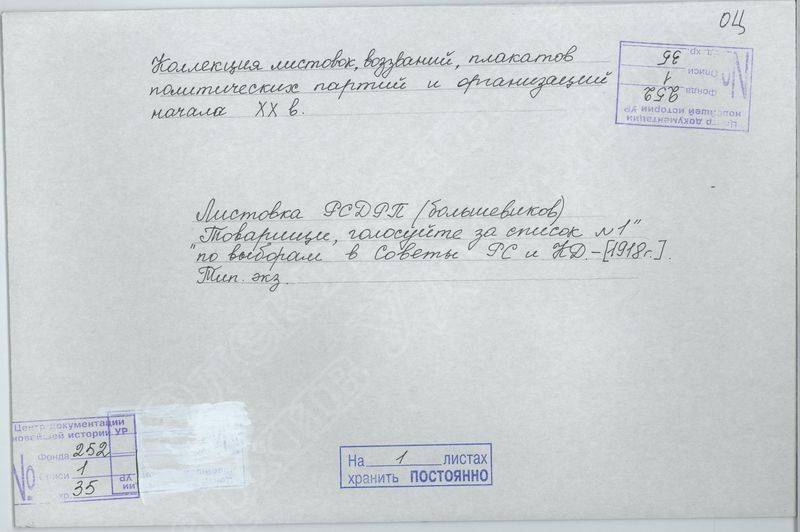 ОЦ
Коллекция листовок, воззваний, плакатов
политических партий и организаций
начала XX в.
Центр документации
новейшей истории УР
Фонда 252
Описи 1
хр. 35
№
Листовка РСДРП (большевиков)
"Товарищи, голосуйте за список №1"
по выборам в Советы РС и КД. – [1918 г.].
Тип. экз.
Центр документации
новейшей истории УР
Фонда 252
Описи 1
хр. 35
№
На 1 листах
хранить ПОСТОЯННО